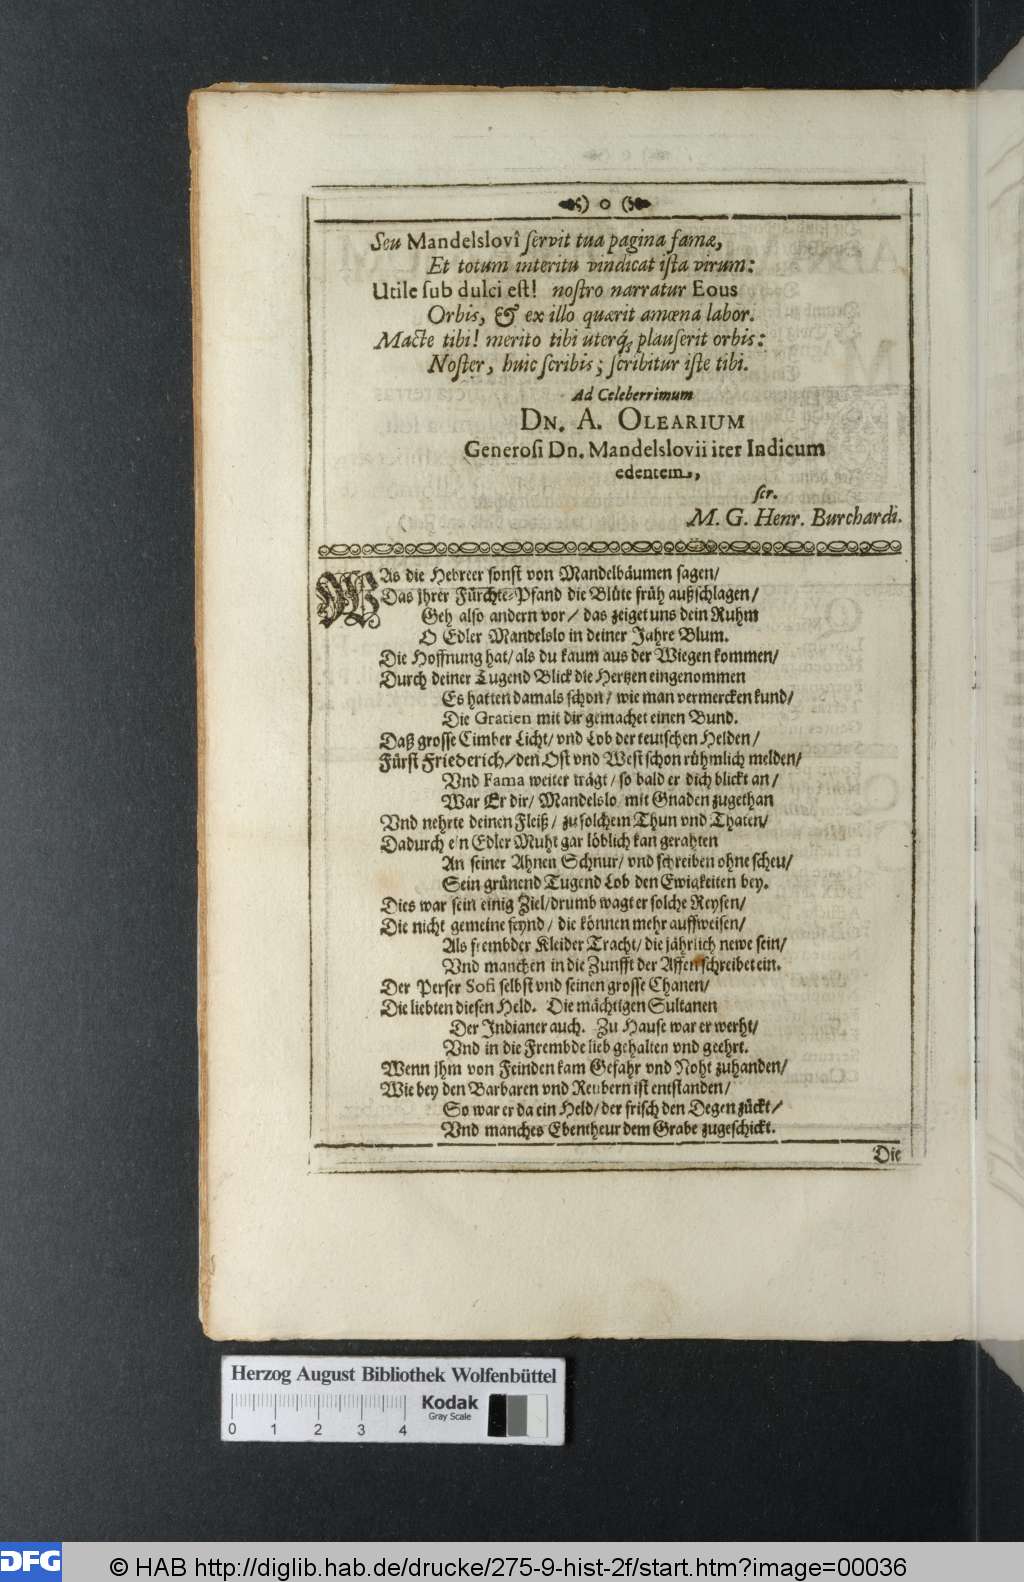 Seu Mandelslovî servit tua pagina famæ,
Et totum interitu vindicat ista virum:
Utile sub dulci est! nostro narratur Eous
Orbis, & ex illo quærit amœna labor.
Macte tibi! merito tibi uterq́; plauserit orbis:
Noster, huic scribis; scribitur iste tibi.
Ad Celeberrimum
DN. A. OLEARIUM
Generosi Dn. Mandelslovii iter Indicum
edentem,
scr.
M. G. Henr. Burchardi.
WAs die Hebreer sonst von Mandelbäumen sagen/
Das jhrer Fürchte-Pfand die Blüte früh außschlagen/
Geh also andern vor/ das zeiget uns dein Ruhm
O Edler Mandelslo in deiner Jahre Blum.
Die Hoffnung hat/ als du kaum aus der Wiegen kommen/
Durch deiner Tugend Blick die Hertzen eingenommen
Es hatten damals schon/ wie man vermercken kund/
Die Gratien mit dir gemachet einen Bund.
Daß grosse Cimber Licht/ vnd Lob der teutschen Helden/
Fürst Friederich/ den Ost vnd West schon rühmlich melden/
Vnd Fama weiter trägt/ so bald er dich blickt an/
War Er dir/ Mandelslo/ mit Gnaden zugethan
Vnd nehrte deinen Fleiß/ zu solchem Thun vnd Thaten/
Dadurch ein Edler Muht gar löblich kan gerahten
An seiner Ahnen Schnur/ vnd schreiben ohne scheu/
Sein grünend Tugend Lob den Ewigkeiten bey.
Dies war sein einig Ziel/ drumb wagt er solche Reysen/
Die nicht gemeine seynd/ die können mehr auffweisen/
Als frembder Kleider Tracht/ die jährlich newe sein/
Vnd manchen in die Zunfft der Affen schreibet ein.
Der Perser Sofi selbst vnd seinen grosse Chanen/
Die liebten diesen Held. Die mächtigen Sultanen
Der Indianer auch. Zu Hause war er werht/
Vnd in die Frembde lieb gehalten vnd geehrt.
Wenn jhm von Feinden kam Gefahr vnd Noht zuhanden/
Wie bey den Barbaren vnd Reubern ist entstanden/
So war er da ein Held/ der frisch den Degen zückt/
Vnd manches Ebentheur dem Grabe zugeschickt.
Die
Herzog August Bibliothek Wolfenbüttel
Kodak
Gray Scale
0 1 2 3 4
DFG
© HAB http://diglib.hab.de/drucke/275-9-hist-2f/start.htm?image=00036